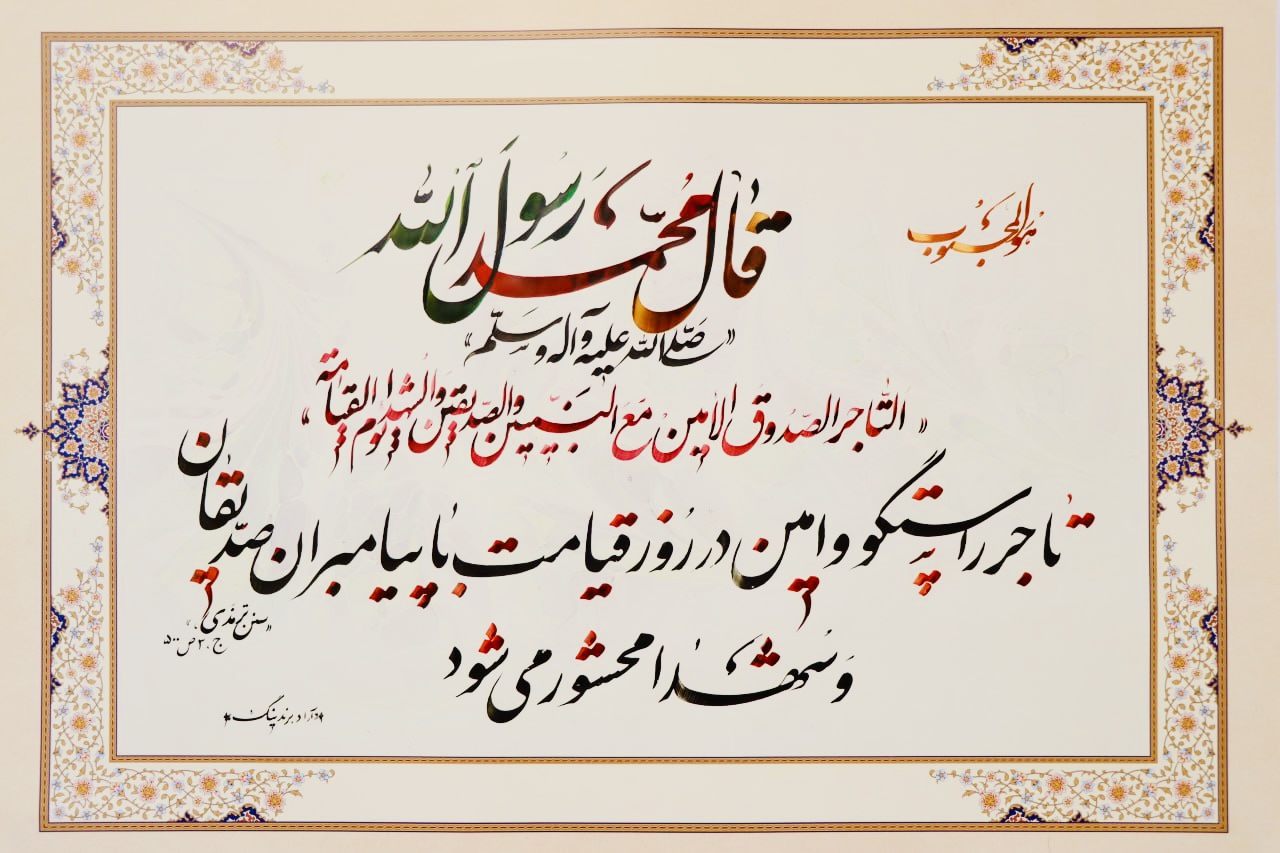 هُوَالمَحبُوب
قالَ مُحَمَّد رَسُولَ اللّٰه
«صَلَّی اللّٰه علیهِ وَآله وَسَلَّم»
«التّاجر الصّدُوق الامین مَعَ النَبیّین وَالصّدیقین وَالشُهداء یَوم القیامَة»
تاجر راستگو و امین در رُوز قیامت با پیامبران صدّیقان
وَ شهدا محشور می شود
«سنن ترمذی»
ج.۲ ص ۵۰۰
دآراد برندینگ